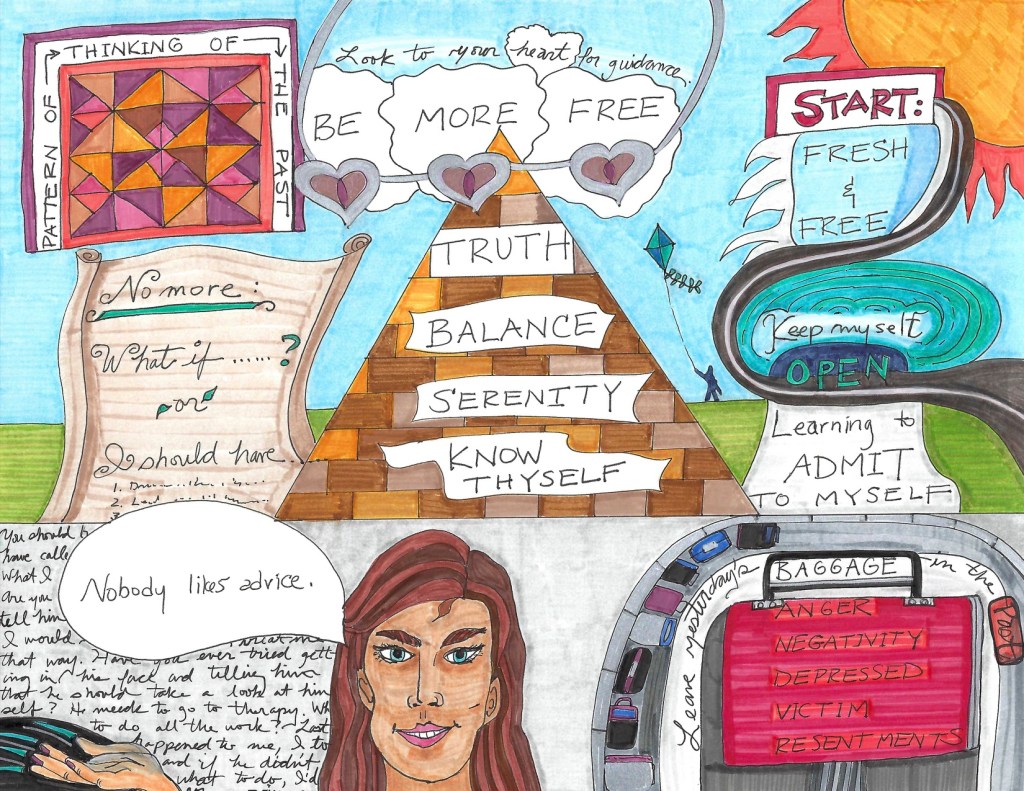 PATTERN OF THINKING OF THE PAST
Look to your heart for guidance.
BE MORE FREE
START:
FRESH
&
FREE
TRUTH
BALANCE
SERENITY
KNOW
THYSELF
No more:
What if ...... ?
or
I should have ......
1.
2.
Keep myself
OPEN
Learning to
ADMIT
TO MYSELF
Nobody likes advice.
You should b
have calle
What I
Are you
tell him
I would treat me
that way. Have you ever tired gett
ing in his face and telling him
that he should take a look at him
self? He needs to go to therapy. Wh
to do all the work? Last
happened to me, I to
and if he didn't
what to do, I'd
Leave yesterday's BAGGAGE in the PAST
ANGER
NEGATIVITY
DEPRESSED
VICTIM
RESENTMENTS